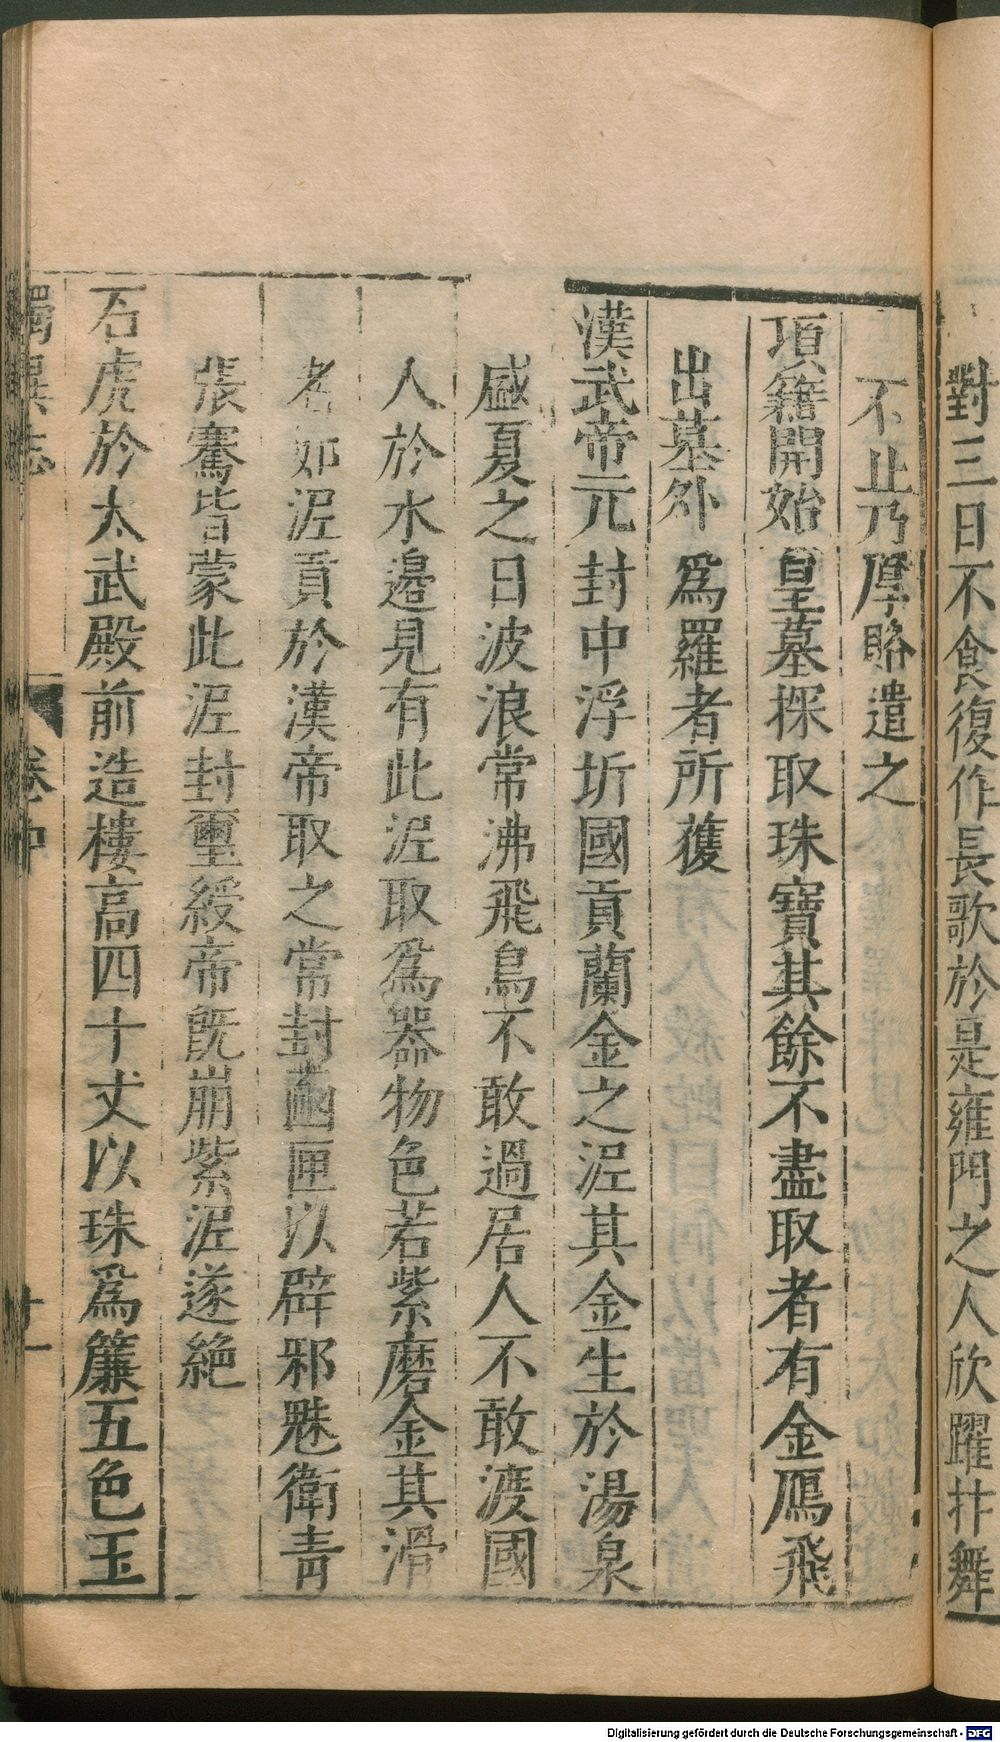 對三日不食復作長歌於是雍門之人欣躍抃舞
不止乃厚賂遣之
項籍開始皇墓探取珠寶其餘不盡取者有金鴈飛
出墓外爲羅者所獲
漢武帝元封中浮圻國貢蘭金之泥其金生於湯泉
盛夏之日波浪常沸飛鳥不敢過居人不敢渡國
人於水邊見有此泥取爲器物色若紫磨金其滑
者如泥貢於漢帝取之常封函匣以辟邪魅衛青
張騫皆蒙此泥封璽綬帝旣崩紫泥遂絶
石虎於太武殿前造樓高四十丈以珠爲簾五色玉
獨異志
卷中
Digitalisierung gefördert durch die Deutsche Forschungsgemeinschaft - DFG